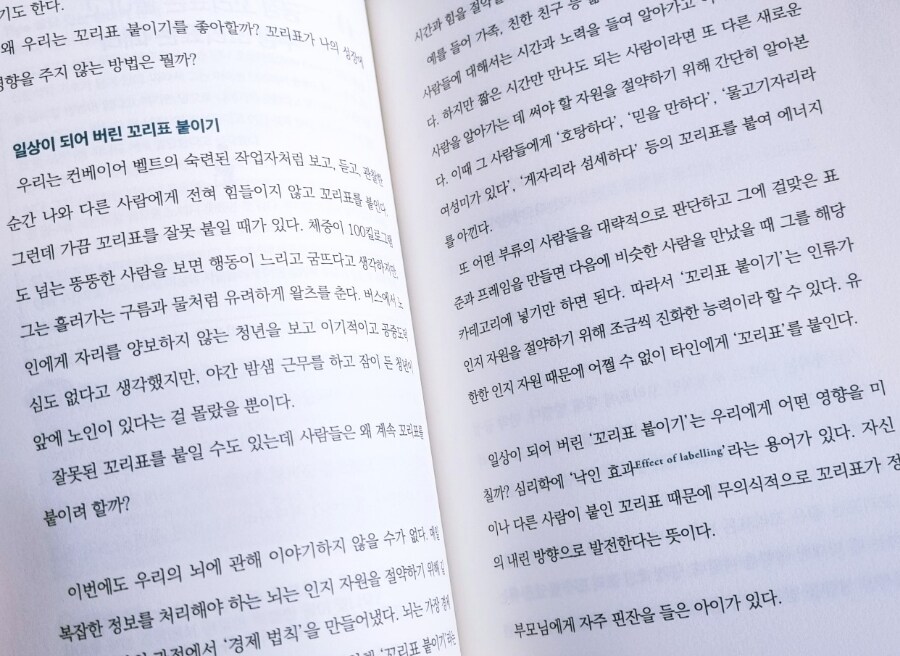 기도 한다.
왜 우리는 꼬리표 붙이기를 좋아할까? 꼬리표가 나의 성장에
영향을 주지 않는 방법은 뭘까?
일상이 되어 버린 꼬리표 붙이기
우리는 컨베이어 벨트의 숙련된 작업자처럼 보고, 듣고, 관찰한
순간 나와 다른 사람에게 전혀 힘들이지 않고 꼬리표를 붙인다.
그런데 가끔 꼬리표를 잘못 붙일 때가 있다. 체중이 100킬로그램
도 넘는 뚱뚱한 사람을 보면 행동이 느리고 굼뜨다고 생각하지만,
그는 흘러가는 구름과 물처럼 유려하게 왈츠를 춘다. 버스에서 노
인에게 자리를 양보하지 않는 청년을 보고 이기적이고 공중도덕
심도 없다고 생각했지만, 야간 밤샘 근무를 하고 잠이 든 청년이
앞에 노인이 있다는 걸 몰랐을 뿐이다.
잘못된 꼬리표를 붙일 수도 있는데 사람들은 왜 계속 꼬리표를
붙이려 할까?
이번에도 우리의 뇌에 관해 이야기하지 않을 수가 없다. 매일
복잡한 정보를 처리해야 하는 뇌는 인지 자원을 절약하기 위해
과정에서 ‘경제 법칙’을 만들어냈다. 뇌는 가장
‘꼬리표 붙이기’라는
시간과 힘을 절약할
예를 들어 가족, 친한 친구 등
사람들에 대해서는 시간과 노력을 들여 알아가고
다. 하지만 짧은 시간만 만나도 되는 사람이라면 또 다른 새로운
사람을 알아가는 데 써야 할 자원을 절약하기 위해 간단히 알아본
다. 이때 그 사람들에게 ‘호탕하다’, ‘믿을 만하다’, ‘물고기자리라
여성미가 있다’, ‘게자리라 섬세하다’ 등의 꼬리표를 붙여 에너지
를 아낀다.
또 어떤 부류의 사람들을 대략적으로 판단하고 그에 걸맞은 표
준과 프레임을 만들면 다음에 비슷한 사람을 만났을 때 그를 해당
카테고리에 넣기만 하면 된다. 따라서 ‘꼬리표 붙이기’는 인류가
인지 자원을 절약하기 위해 조금씩 진화한 능력이라 할 수 있다. 유
한한 인지 자원 때문에 어쩔 수 없이 타인에게 ‘꼬리표’를 붙인다.
일상이 되어 버린 ‘꼬리표 붙이기’는 우리에게 어떤 영향을 미
칠까? 심리학에 ‘낙인 효과Effect of labelling’라는 용어가 있다. 자신
이나 다른 사람이 붙인 꼬리표 때문에 무의식적으로 꼬리표가 정
의 내린 방향으로 발전한다는 뜻이다.
부모님에게 자주 핀잔을 들은 아이가 있다.